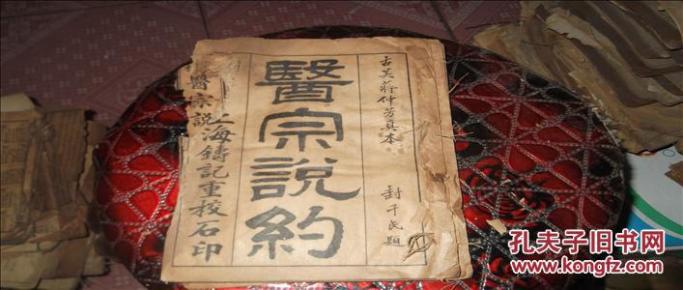 古吴蒋仲芳真本
醫宗說約
封于民題
上海鑄記重校石印
醫宗說
孔夫子旧书网
www.kongfz.com